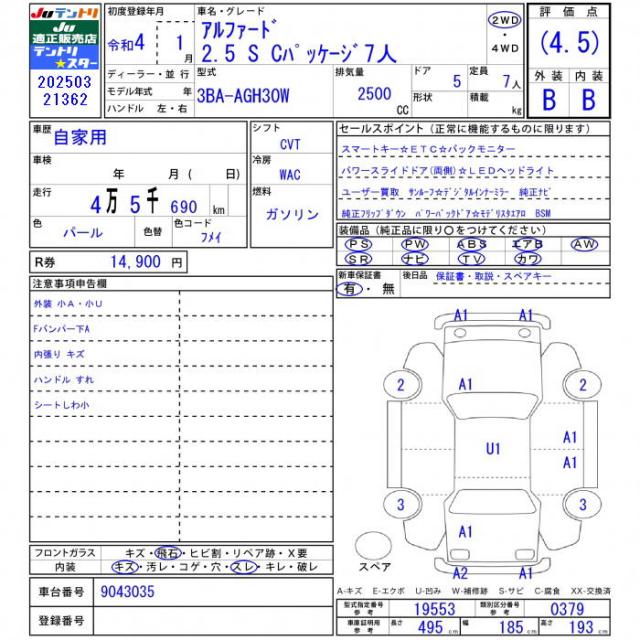 Juテントリ
Ju
適正販売店
テントリ
★スター
202503
21362
初度登録年月
令和4 1月
ディーラー・並行
モデル年式 年
ハンドル 左・右
車名・グレード
アルファード
2.5 S Cパッケージ7人
2WD
・
4WD
型式
3BA-AGH30W
排気量
2500
CC
ドア
5
形状
定員
7人
積載
kg
評価点
(4.5)
外装 内装
B B
車歴
自家用
車検
年 月( 日)
走行
4万5千690km
色
パール
色替
色コード
フメイ
シフト
CVT
冷房
WAC
燃料
ガソリン
R券 14,900 円
セールスポイント(正常に機能するものに限ります)
スマートキー☆ETC☆バックモニター
パワースライドドア(両側)☆LEDヘッドライト
ユーザー買取 サンルーフ☆デジタルインナーミラー 純正ナビ
純正フリップダウン パワーバックドア☆モデリスタエアロ BSM
装備品(純正品に限り○をつけてください)
PS PW ABS エアB AW
SR ナビ TV カワ
新車保証書
有・無
後日品 保証書・取説・スペアキー
注意事項申告欄
外装 小A・小U
Fバンパー下A
内張り キズ
ハンドル すれ
シートしわ小
A1 A1
A1
2 2
U1
A1
A1
3 3
A1
A2 A1
スペア
フロントガラス キズ・飛石・ヒビ割・リペア跡・X要
内装 キズ・汚レ・コゲ・穴・スレ・キレ・破レ
A-キズ E-エクボ U-凹み W-補修跡 S-サビ C-腐食 XX-交換済
車台番号 9043035
登録番号
型式指定番号 19553 類別区分番号 0379
車庫証明用参考 長さ 495cm 幅 185cm 高さ 193cm